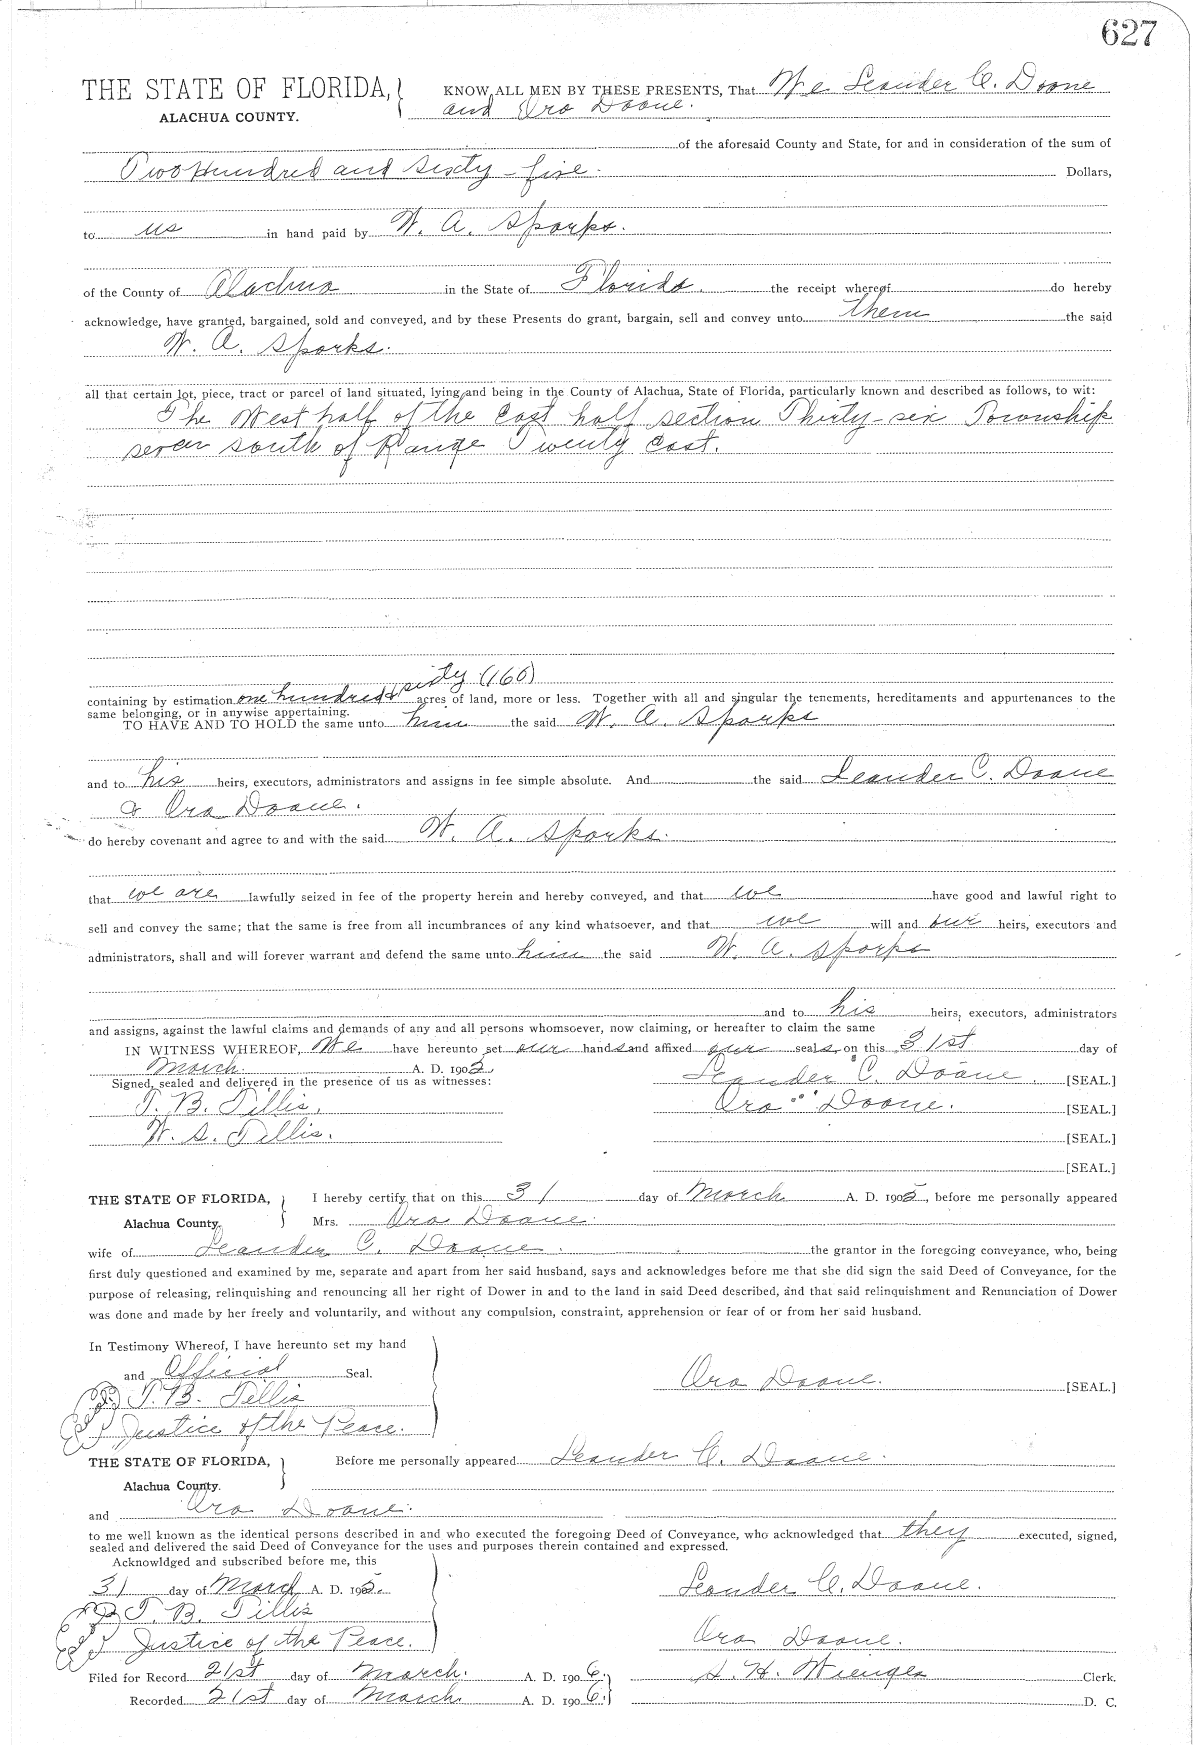 627
THE STATE OF FLORIDA,
ALACHUA COUNTY.
KNOW ALL MEN BY THESE PRESENTS, That We Leander C. Doane
and Ora Doane.
of the aforesaid County and State, for and in consideration of the sum of
Two Hundred and sixty-five. Dollars,
to us in hand paid by W. A. Sparks.
of the County of Alachua in the State of Florida. the receipt whereof do hereby
acknowledge, have granted, bargained, sold and conveyed, and by these Presents do grant, bargain, sell and convey unto them the said
W. A. Sparks.
all that certain lot, piece, tract or parcel of land situated, lying and being in the County of Alachua, State of Florida, particularly known and described as follows, to wit:
The West half of the East half section Thirty-six Township
seven south of Range Twenty East.
containing by estimation one hundred & sixty (160) acres of land, more or less. Together with all and singular the tenements, hereditaments and appurtenances to the
same belonging, or in anywise appertaining.
TO HAVE AND TO HOLD the same unto him the said W. A. Sparks
and to his heirs, executors, administrators and assigns in fee simple absolute. And the said Leander C. Doane
& Ora Doane.
do hereby covenant and agree to and with the said W. A. Sparks.
that we are lawfully seized in fee of the property herein and hereby conveyed, and that we have good and lawful right to
sell and convey the same; that the same is free from all incumbrances of any kind whatsoever, and that we will and our heirs, executors and
administrators, shall and will forever warrant and defend the same unto him the said W. A. Sparks
and to his heirs, executors, administrators
and assigns, against the lawful claims and demands of any and all persons whomsoever, now claiming, or hereafter to claim the same
IN WITNESS WHEREOF, We have hereunto set our hands and affixed our seals on this 31st day of
March. A. D. 1905.
Signed, sealed and delivered in the presence of us as witnesses:
Leander C. Doane. [SEAL.]
T. B. Tillis.
Ora Doane. [SEAL.]
W. S. Tillis.
[SEAL.]
[SEAL.]
THE STATE OF FLORIDA,
Alachua County.
I hereby certify that on this 31 day of March A. D. 1905, before me personally appeared
Mrs. Ora Doane.
wife of Leander C. Doane. the grantor in the foregoing conveyance, who, being
first duly questioned and examined by me, separate and apart from her said husband, says and acknowledges before me that she did sign the said Deed of Conveyance, for the
purpose of releasing, relinquishing and renouncing all her right of Dower in and to the land in said Deed described, and that said relinquishment and Renunciation of Dower
was done and made by her freely and voluntarily, and without any compulsion, constraint, apprehension or fear of or from her said husband.
In Testimony Whereof, I have hereunto set my hand
and Official Seal.
Ora Doane. [SEAL.]
T. B. Tillis
Justice of the Peace.
THE STATE OF FLORIDA,
Alachua County.
Before me personally appeared Leander C. Doane.
and Ora Doane.
to me well known as the identical persons described in and who executed the foregoing Deed of Conveyance, who acknowledged that they executed, signed,
sealed and delivered the said Deed of Conveyance for the uses and purposes therein contained and expressed.
Acknowldged and subscribed before me, this
31 day of March A. D. 1905.
Leander C. Doane.
T. B. Tillis
Justice of the Peace.
Ora Doane.
Filed for Record 21st day of March. A. D. 1906.
S. H. Wienges Clerk.
Recorded 21st day of March A. D. 1906.
D. C.